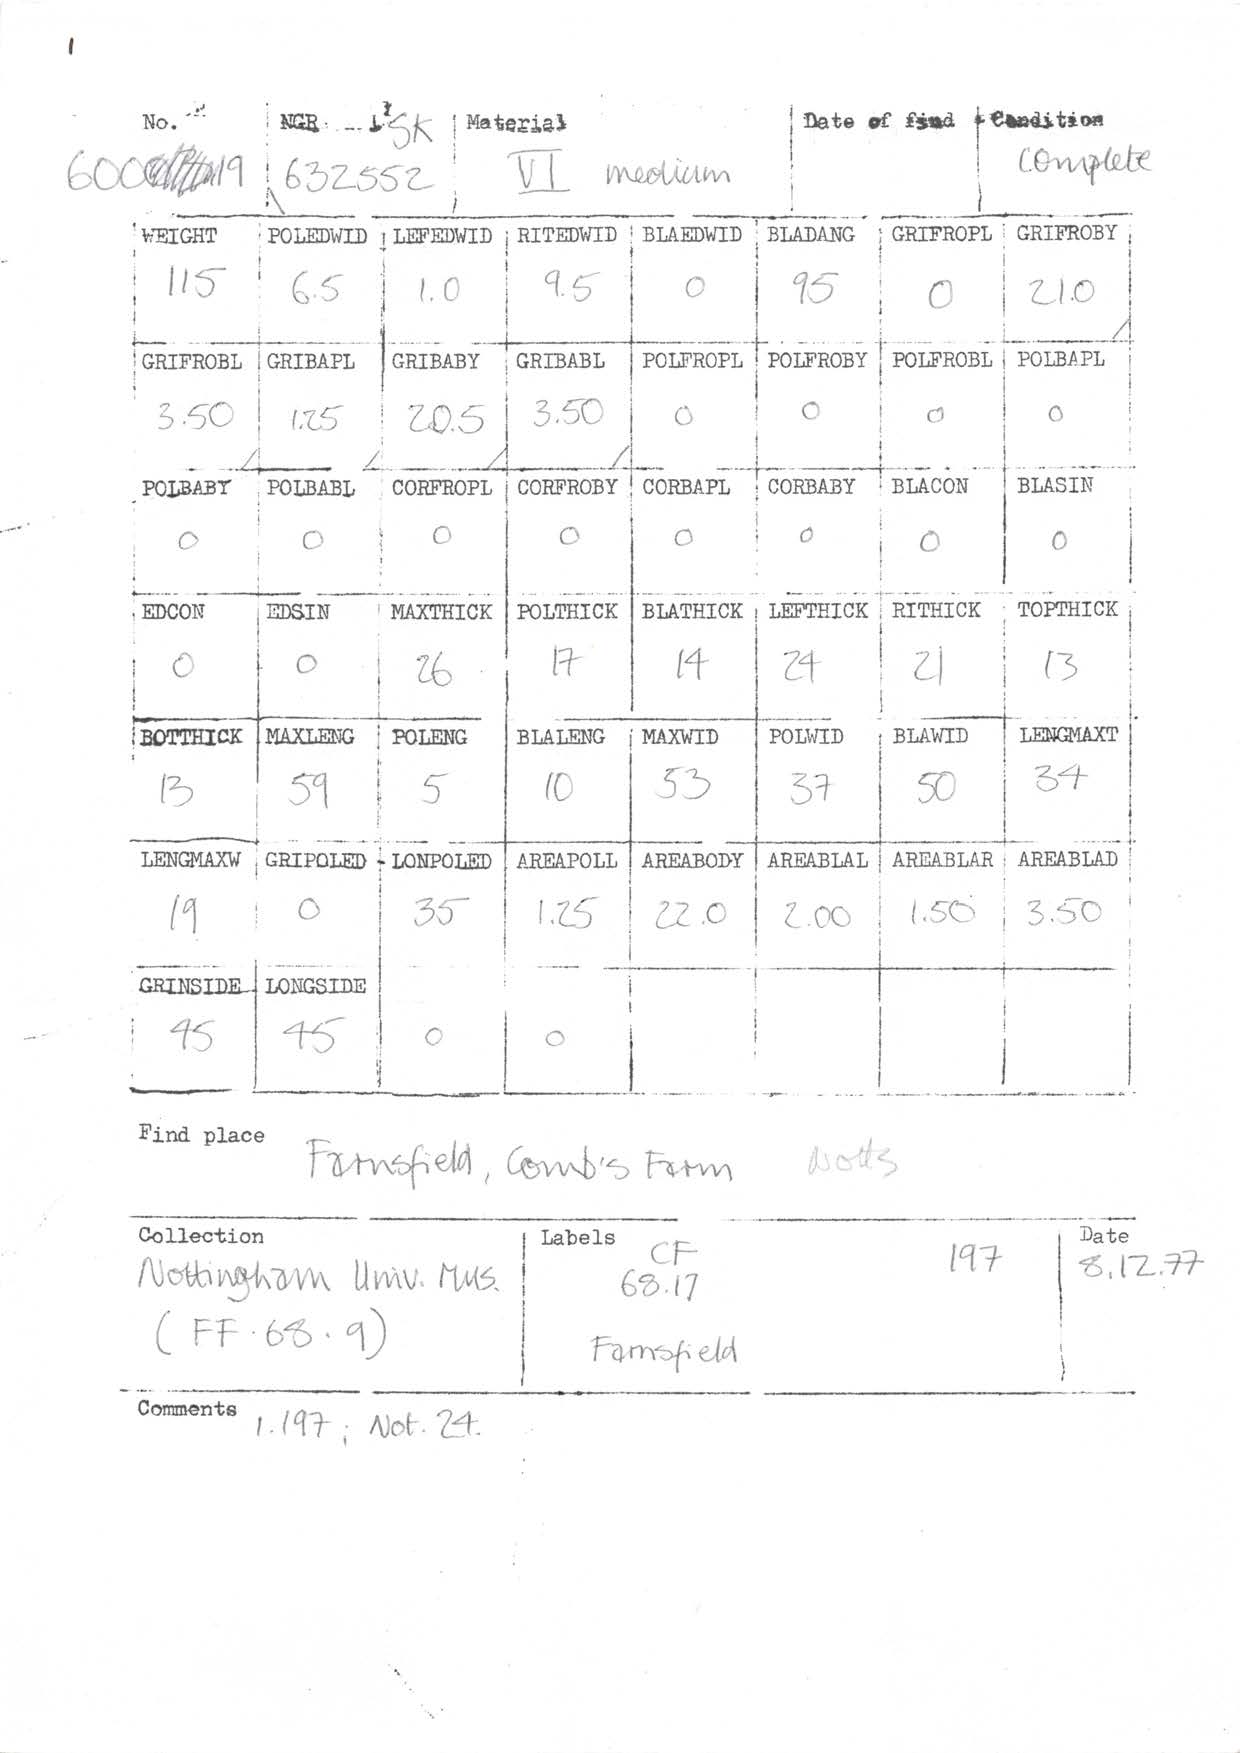 1
No. NGR SK Material Date of find Condition
632552 VI medium complete
WEIGHT POLEDWID LEFEDWID RITEDWID BLAEDWID BLADANG GRIFROPL GRIFROBY
115 6.5 1.0 9.5 0 95 0 21.0
GRIFROBL GRIBAPL GRIBABY GRIBABL POLFROPL POLFROBY POLFROBL POLBAPL
3.50 1.25 20.5 3.50 0 0 0 0
POLBABY POLBABL CORFROPL CORFROBY CORBAPL CORBABY BLACON BLASIN
0 0 0 0 0 0 0 0
EDCON EDSIN MAXTHICK POLTHICK BLATHICK LEFTHICK RITHICK TOPTHICK
0 0 26 17 14 24 21 13
BOTTHICK MAXLENG POLENG BLALENG MAXWID POLWID BLAWID LENGMAXT
13 59 5 10 53 37 50 34
LENGMAXW GRIPOLED LONPOLED AREAPOLL AREABODY AREABLAL AREABLAR AREABLAD
19 0 35 1.25 22.0 2.00 1.50 3.50
GRINSIDE LONGSIDE
45 45 0 0
Find place Farnsfield, Comb's Farm Notts
Collection Labels CF 197 Date
Nottingham Univ. Mus. 68.17 8.12.77
(FF.68.9) Farnsfield
Comments 1.197; Not. 24.